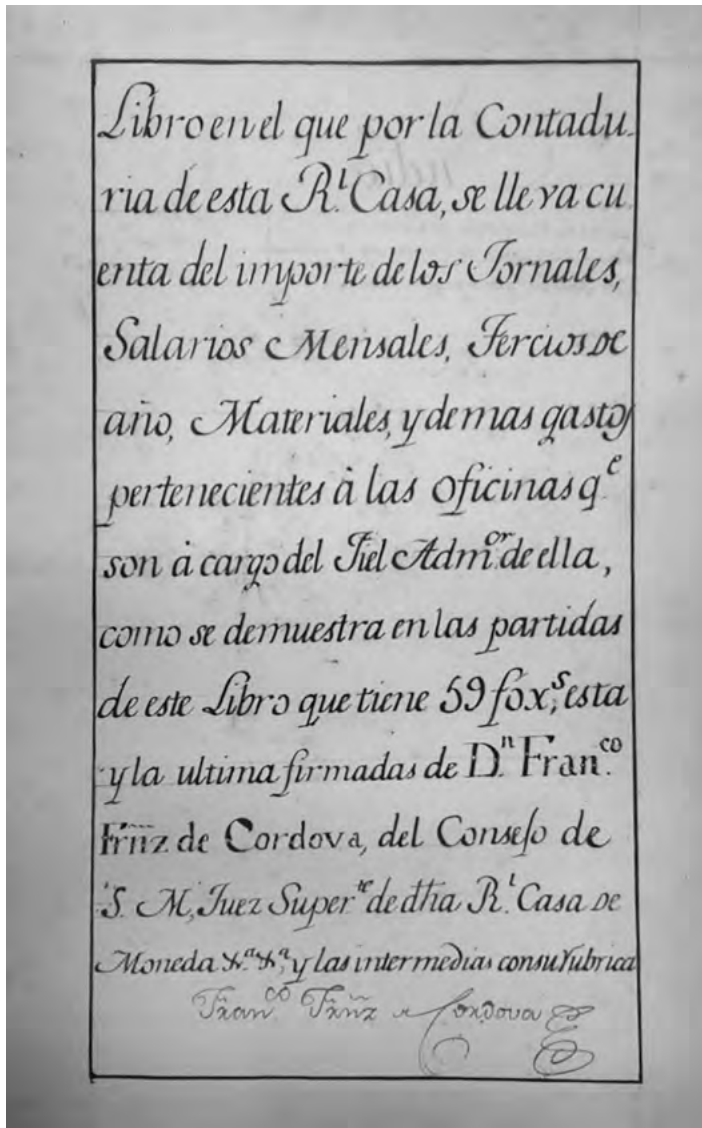 Libro en el que por la Contadu-
ria de esta R.l Casa, se lleva cu
enta del importe de los Jornales,
Salarios Mensales, Tercios de
año, Materiales, y demas gastos
pertenecientes à las oficinas q.e
son à cargo del Fiel Adm.or de ella,
como se demuestra en las partidas
de este Libro que tiene 59 fox.s, esta
y la ultima firmadas de D.n Fran.co
Frñz de Cordova, del Consejo de
S. M, Juez Super.te de dha R.l Casa de
Moneda &.a &.a, y las intermedias con su rubrica
Fran.co Frñz de Cordova